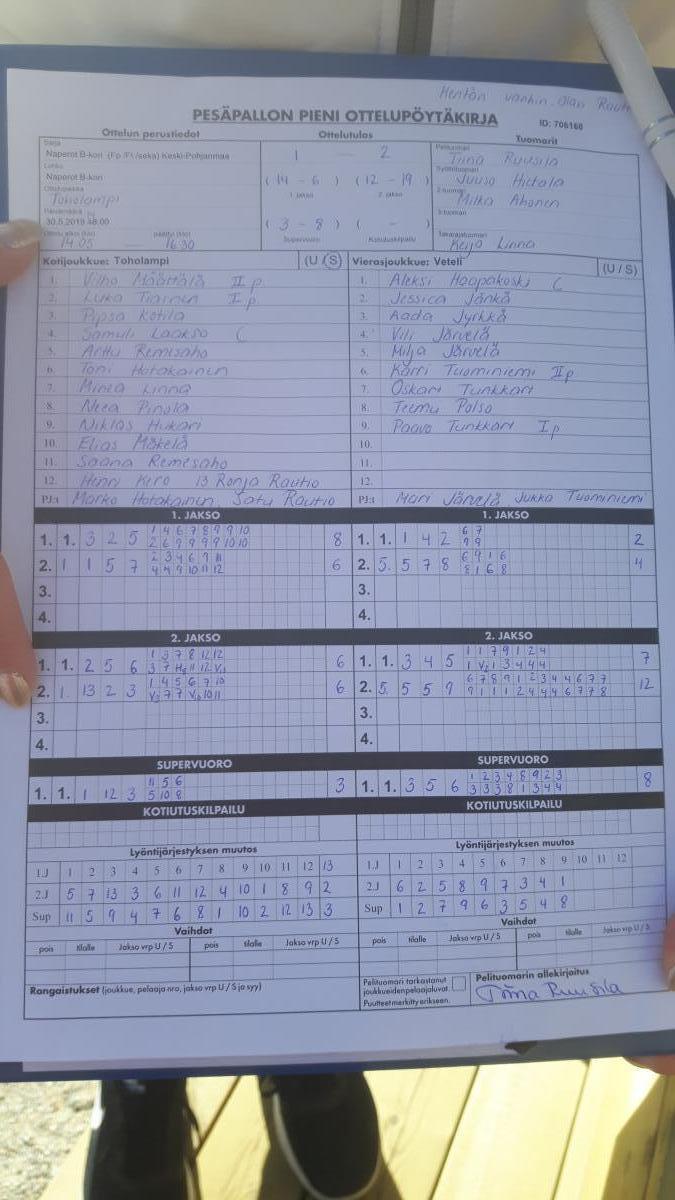 Hentön vanhin Olan Rauti
PESÄPALLON PIENI OTTELUPÖYTÄKIRJA
ID: 706168
Ottelun perustiedot Ottelutulos Tuomarit
Sarja
Naperot B-kori (Fp /Ft /seka) Keski-Pohjanmaa
Lohko
Naperot B-kori
Ottelupaikka
Toholampi
Päivämäärä
30.5.2019
14.05 16.30
1 — 2
( 14 - 6 ) ( 12 - 19 )
1. jakso 2. jakso
( 3 - 8 ) ( - )
Supervuoro Kotiutuskilpailu
Pelituomari
Tiina Ruusila
Syöttötuomari
Juuso Hietala
2-tuomari
Milka Ahonen
3-tuomari
Takarajatuomari
Keijo Linna
Kotijoukkue: Toholampi (U / S)
1. Vilho Määttälä II p
2. Luka Tiainen I p.
3. Pipsa Kotila
4. Samuli Laakso C
5. Arttu Remesaho
6. Toni Hotakainen
7. Minea Linna
8. Neea Pinola
9. Niklas Hukari
10. Elias Mäkelä
11. Saana Remesaho
12. Henri Kero 13 Ronja Rautio
PJ:t Marko Hotakainen, Satu Rautio
Vierasjoukkue: Veteli (U / S)
1. Aleksi Haapakoski C
2. Jessica Jänkä
3. Aada Jyrkkä
4. Vili Järvelä
5. Milja Järvelä
6. Karri Tuominiemi II p
7. Oskari Tunkkari
8. Teemu Palso
9. Paavo Tunkkari I p
10.
11.
12.
PJ:t Mari Järvelä Jukka Tuominiemi
1. JAKSO
1. 1. 3 2 5 1 4 6 7 8 9 9 10 8
2 6 9 9 9 9 10 10
2. 1 1 5 7 2 3 4 6 9 11 6
4 4 9 10 11 12
3.
4.
1. JAKSO
1. 1. 1 4 2 6 7 2
9 9
2. 5. 5 7 8 6 9 1 6 4
8 1 6 8
3.
4.
2. JAKSO
1. 1. 2 5 6 1 3 7 8 12 12 6
2. 1. 13 2 3 1 4 5 6 7 10 6
3.
4.
2. JAKSO
1. 1. 3 4 5 1 1 7 9 1 2 4 7
2. 5. 5 5 9 6 7 8 9 1 2 3 4 4 6 7 7 12
9 1 1 1 2 4 4 4 6 7 7 8
3.
4.
SUPERVUORO
1. 1. 1 12 3 11 5 6 3
5 10 8
SUPERVUORO
1. 1. 3 5 6 1 2 3 4 8 9 2 3 8
3 3 3 8 1 3 4 4
KOTIUTUSKILPAILU
Lyöntijärjestyksen muutos
1.J 1 2 3 4 5 6 7 8 9 10 11 12 13
2.J 5 7 13 3 6 11 12 4 10 1 8 9 2
Sup 11 5 9 4 7 6 8 1 10 2 12 13 3
Vaihdot
pois tilalle Jakso vrp U / S pois tilalle Jakso vrp U / S
Rangaistukset (joukkue, pelaaja nro, jakso vrp U / S ja syy)
KOTIUTUSKILPAILU
Lyöntijärjestyksen muutos
1.J 1 2 3 4 5 6 7 8 9 10 11 12
2.J 6 2 5 8 9 7 3 4 1
Sup 1 2 7 9 6 3 5 4 8
Vaihdot
pois tilalle Jakso vrp U / S pois tilalle Jakso vrp U / S
Pelituomari tarkastanut
joukkueiden pelaajaluvat.
Puutteet merkitty erikseen.
Pelituomarin allekirjoitus
Tiina Ruusila